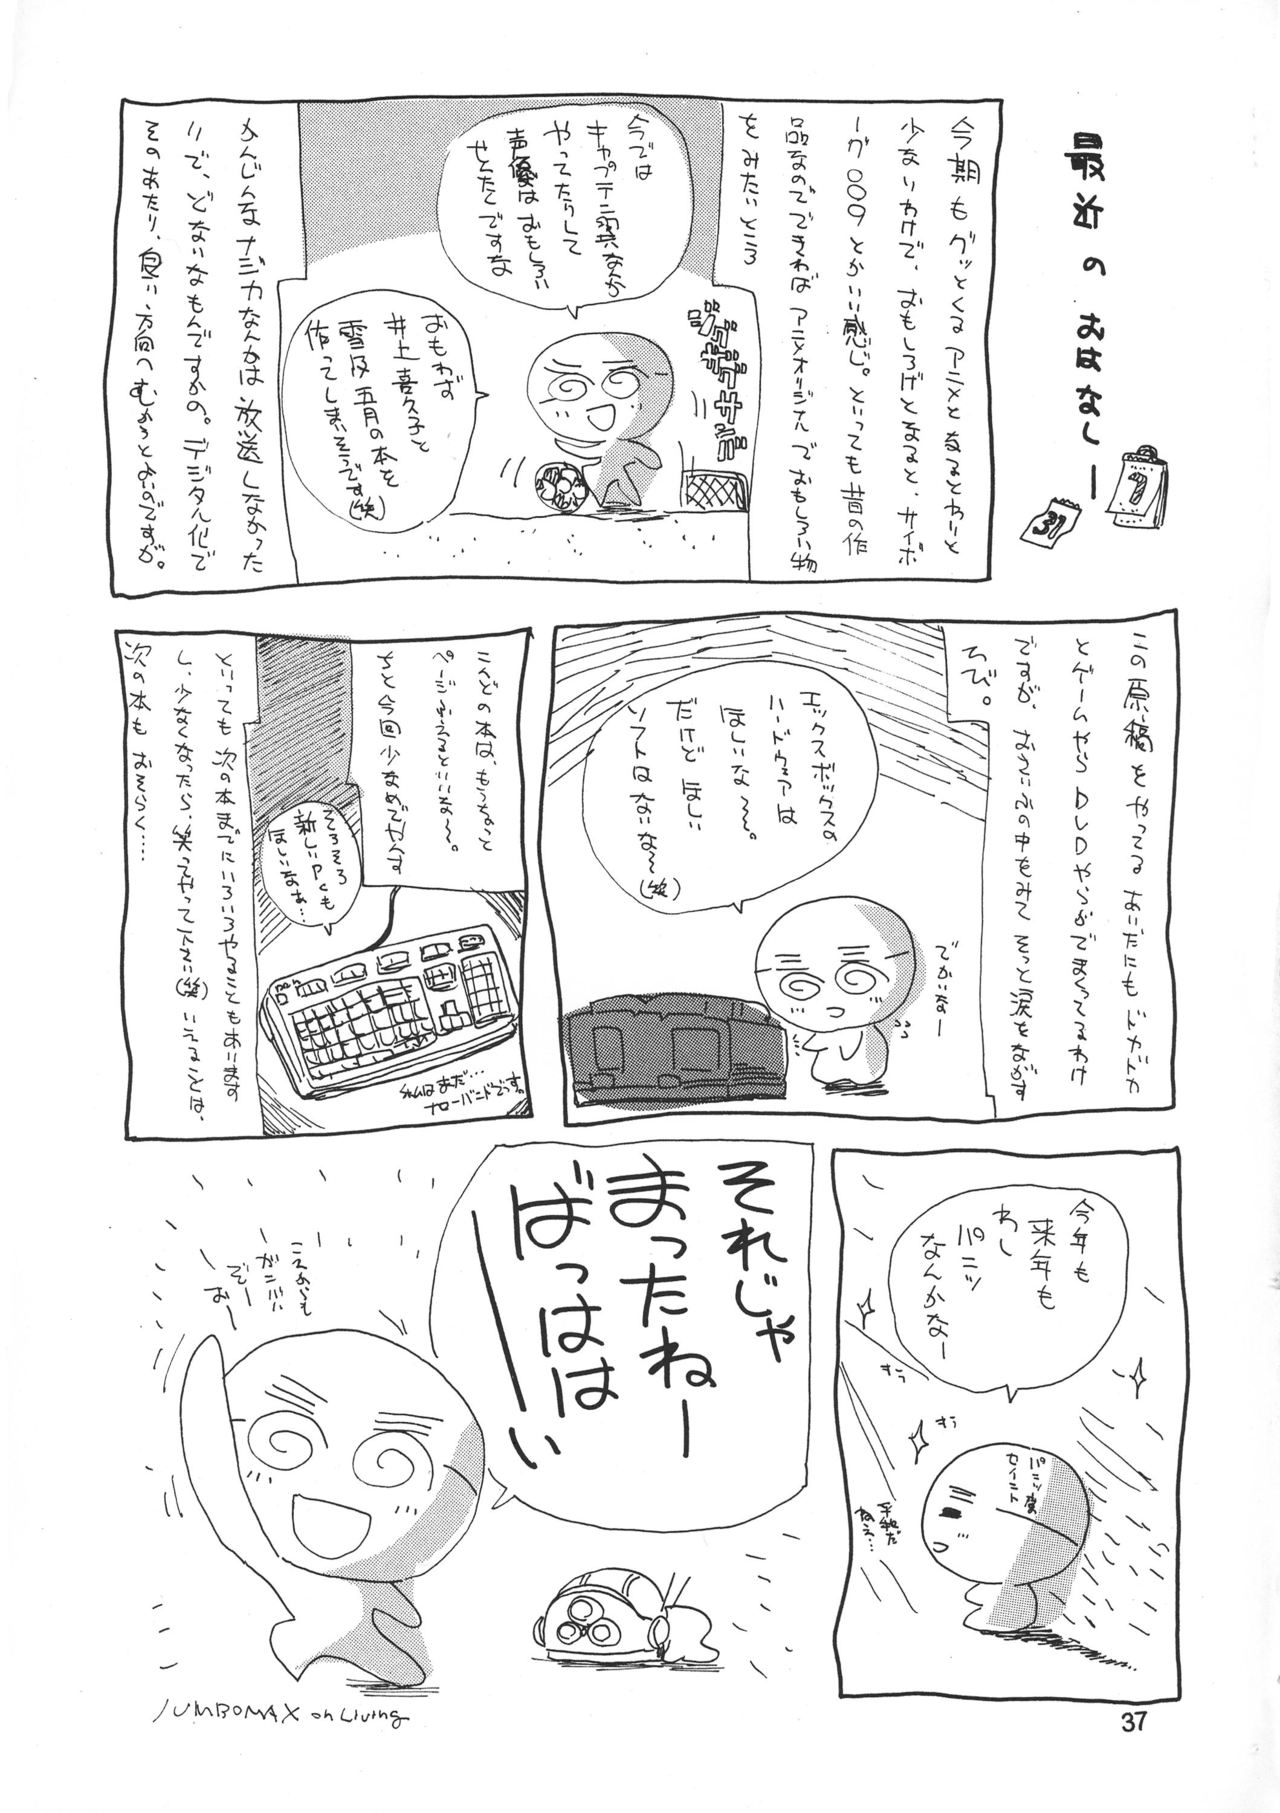 最近のおはなしー
7
31
今期もグッとくるアニメとなるとわりと
少ないわけで、おもしろげとなると、サイボ
ーグ009とかいい感じ。といっても昔の作
品なのでできればアニメオリジナルでおもしろい物
をみたいところ
今では
キャプテン翼なんか
やってたりして
声優はおもしろい
せんたくですな
おもわず
井上喜久子と
雪乃五月の本を
作ってしまいそうです(笑)
かんじんなナジカなんかは放送しなかった
りで、どないなもんですかの。デジタル化で
そのあたり、良い方向へむかうとよいのですが。
この原稿をやってるあいだにもドカドカ
とゲームやらDVDやらがでまくってるわけ
ですが、おさいふの中をみてそっと涙をながす
日び。
エックスボックスの
ハードウェアは
ほしいな〜〜。
だけどほしい
ソフトはないな〜(笑)
でかいなー
こんどの本は、もうちょっと
ページふえるといいな〜。
ちと今回少なめでやんす
そろそろ
新しいPCも
ほしいなぁ…
といっても次の本までにいろいろやることもあります
し、少なくなったら、笑ってやって下さい(笑)いえることは、
次の本もおそらく……
うちはまだ…
ナローバンドでっす。
今年も
来年も
わし
パニッ
なんかなー
すう
すう
平和だ
ねえ…
それじゃ
まったねー
ばっはは
ーい
これからも
ガンバル
ぞー
おー
JUMBOMAX on Living
37